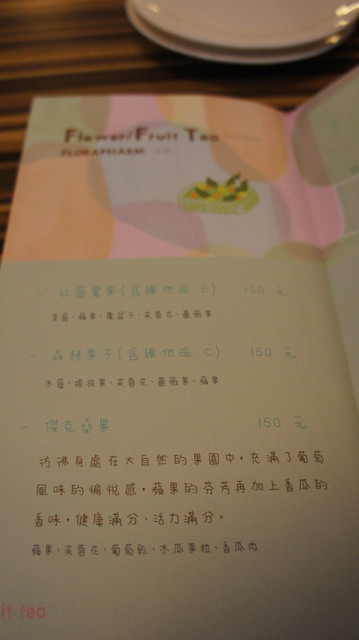 Flower/Fruit Tea
FLORAPHARM
(含維他命 E) 150 元
森林果子(含維他命 C) 150 元
木莓、接枝果、芙蓉花、薔薇果、蘋果
傑克桑果 150 元
彷彿身處在大自然的果園中，充滿了葡萄
風味的愉悅感，蘋果的芬芳再加上香瓜的
香味，健康滿分、活力滿分。
蘋果、芙蓉花、葡萄乾、木瓜果粒、香瓜肉
it tea